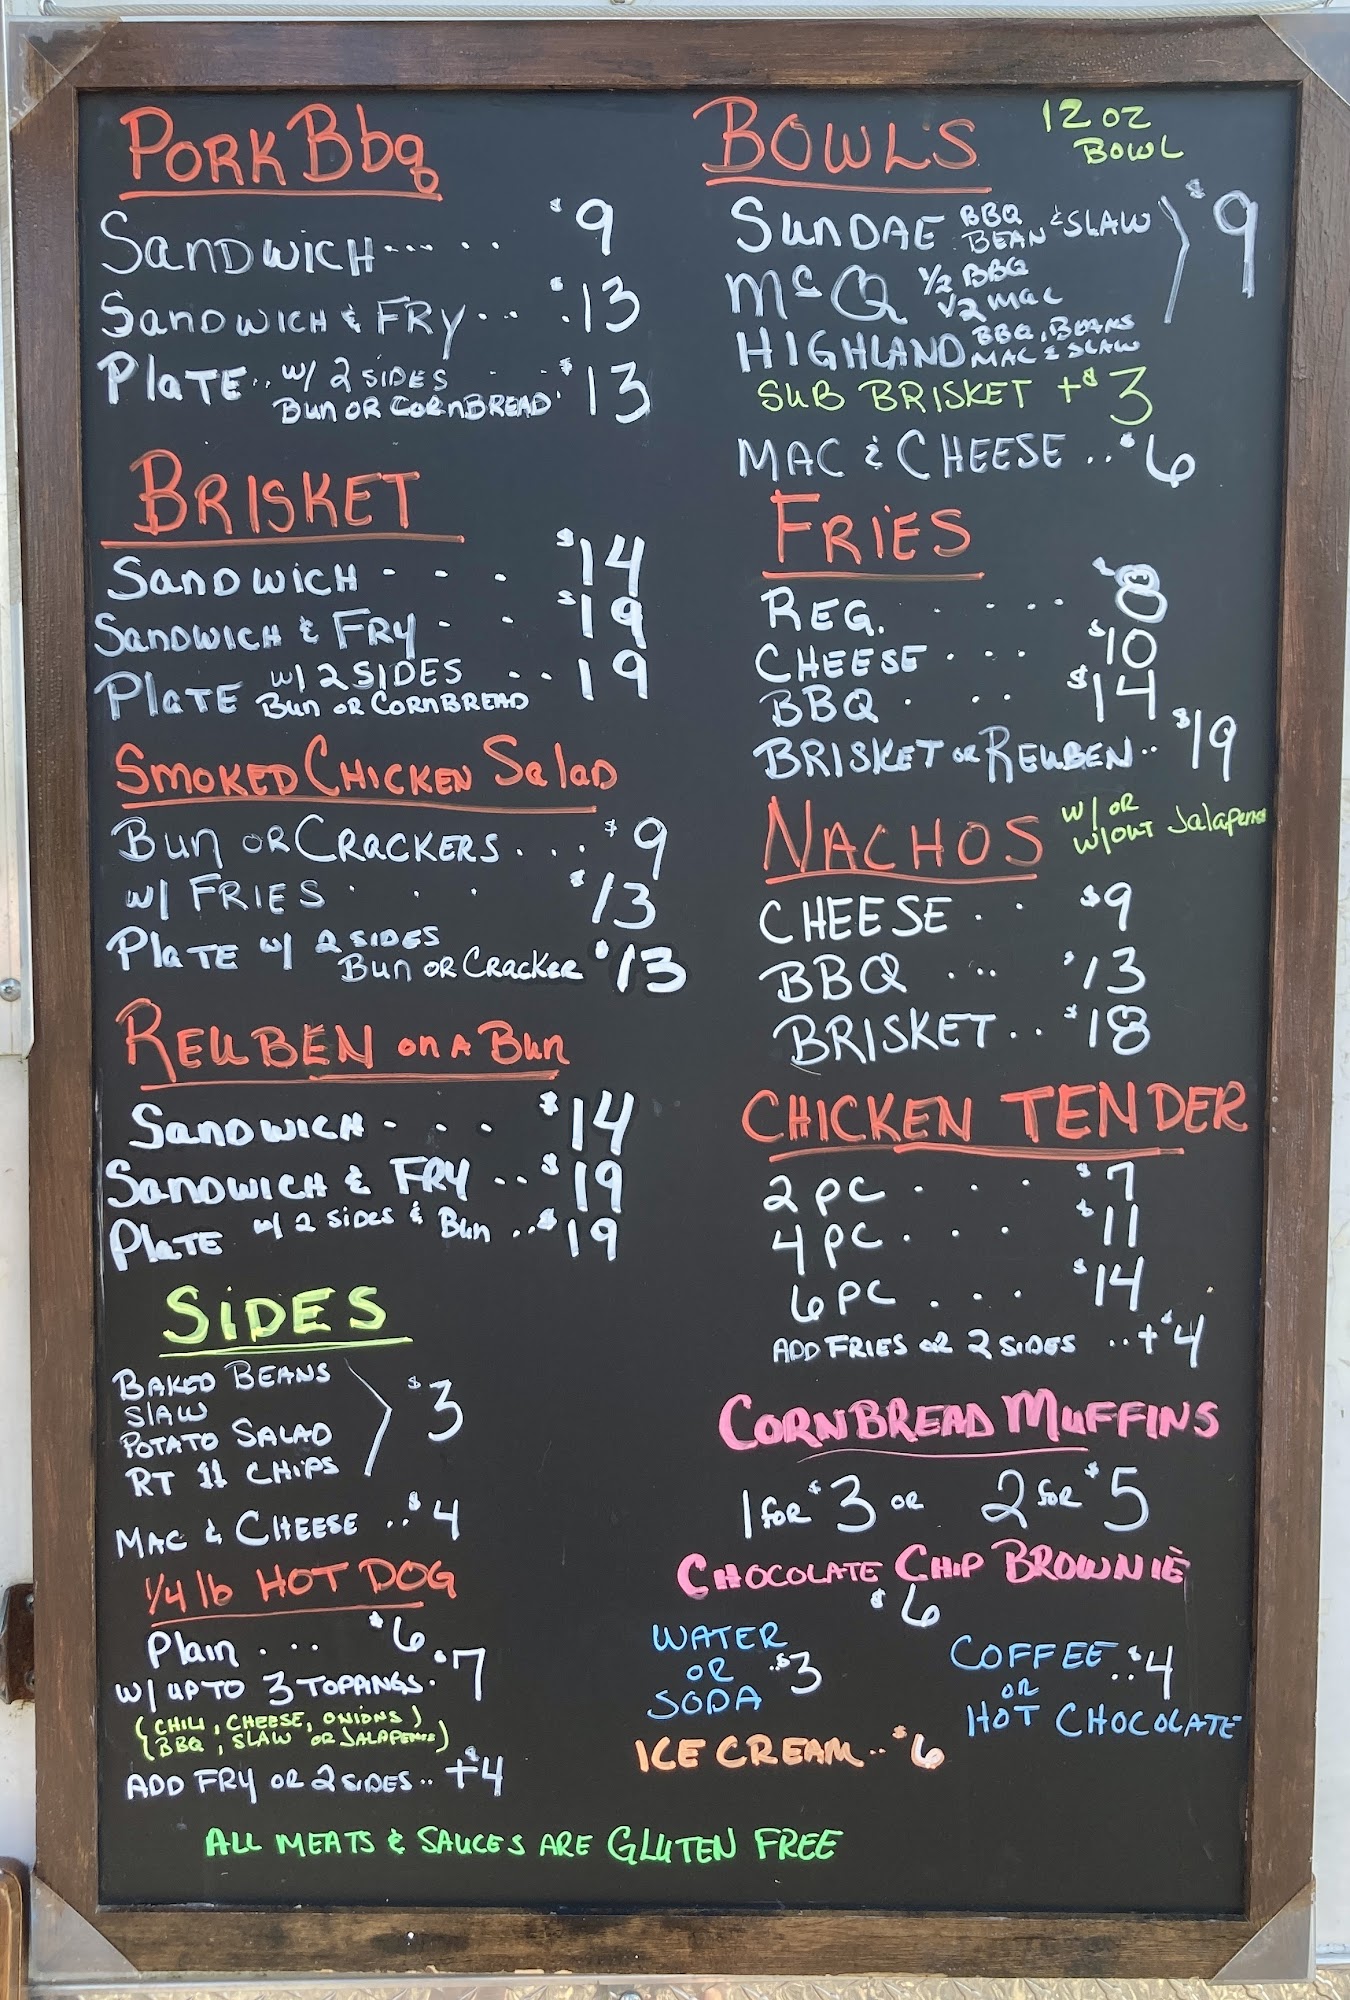 PORK Bbq
SANDWICH...... $9
SANDWICH & FRY... $13
PLATE.. W/ 2 SIDES -- $13
BUN OR CORNBREAD
BRISKET
SANDWICH - - - $14
SANDWICH & FRY - - $19
PLATE W/ 2 SIDES ... 19
BUN OR CORNBREAD
SMOKED CHICKEN SALAD
BUN OR CRACKERS... $9
W/ FRIES . . . $13
PLATE W/ 2 SIDES
BUN OR CRACKER $13
REUBEN ON A BUN
SANDWICH - - - $14
SANDWICH & FRY .. $19
PLATE W/ 2 SIDES & BUN .. $19
SIDES
BAKED BEANS
SLAW
POTATO SALAD
RT 11 CHIPS
$3
MAC & CHEESE .. $4
1/4 lb HOT DOG
Plain . ... $6
W/ UP TO 3 TOPPINGS. $7
(CHILI, CHEESE, ONIONS)
(BBQ, SLAW OR JALAPENOS)
ADD FRY OR 2 SIDES.. +$4
BOWLS 12 OZ
BOWL
SUNDAE BBQ
BEAN & SLAW
McQ 1/2 BBQ
1/2 MAC
$9
HIGHLAND BBQ, BEANS
MAC & SLAW
SUB BRISKET +$3
MAC & CHEESE .. $6
FRIES
REG. . . . . $8
CHEESE . . . $10
BBQ . . . $14
BRISKET OR REUBEN .. $19
NACHOS W/ OR
W/OUT Jalapenos
CHEESE . . $9
BBQ ... $13
BRISKET.. $18
CHICKEN TENDER
2 PC . . . $7
4 PC . . . $11
6 PC . . . $14
ADD FRIES OR 2 SIDES ..+$4
CORNBREAD MUFFINS
1 for $3 OR 2 for $5
CHOCOLATE CHIP BROWNIE
$6
WATER
OR
SODA
..$3
COFFEE..$4
OR
HOT CHOCOLATE
ICE CREAM.. $6
ALL MEATS & SAUCES ARE GLUTEN FREE